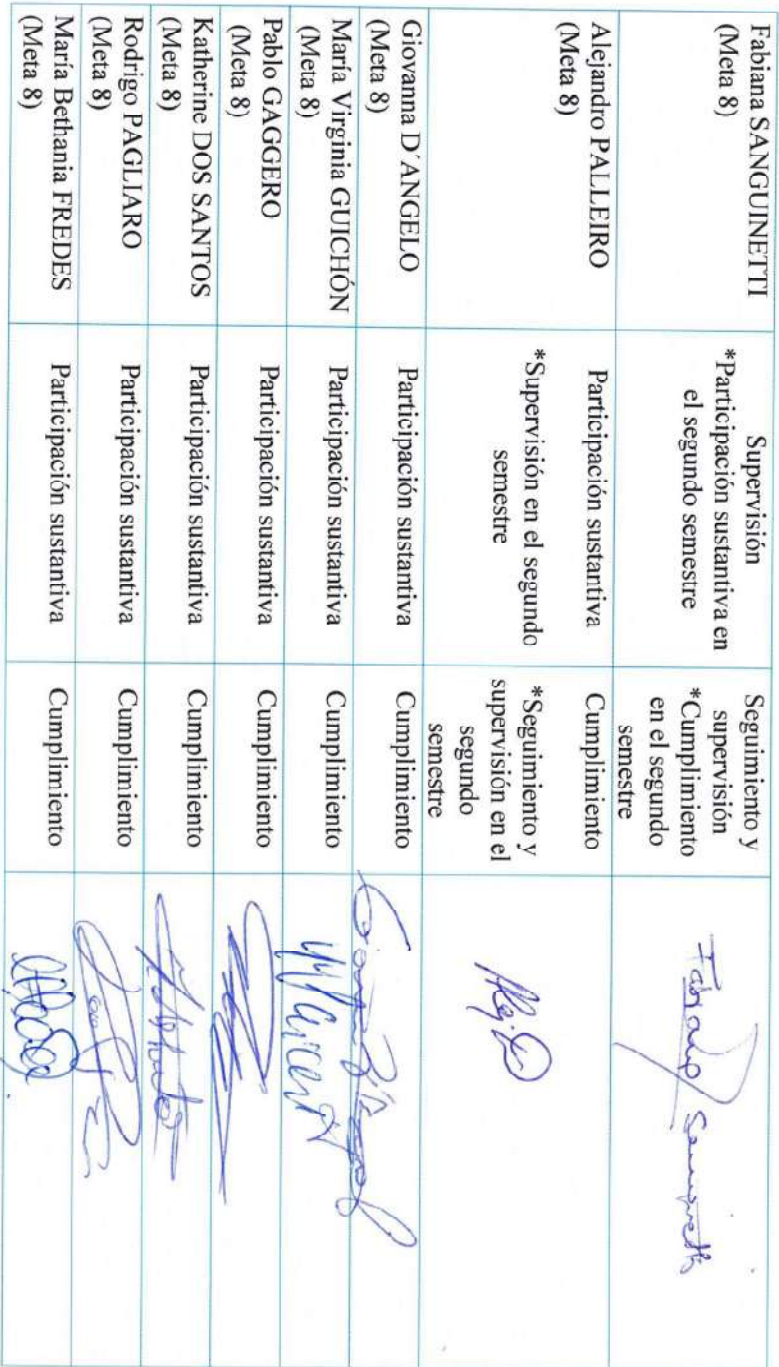 Fabiana SANGUINETTI
(Meta 8)
Supervisión
*Participación sustantiva en
el segundo semestre
Seguimiento y
supervisión
*Cumplimiento
en el segundo
semestre
Alejandro PALLEIRO
(Meta 8)
Participación sustantiva
*Supervisión en el segundo
semestre
Cumplimiento
*Seguimiento y
supervisión en el
segundo
semestre
Giovanna D´ANGELO
(Meta 8)
Participación sustantiva
Cumplimiento
María Virginia GUICHÓN
(Meta 8)
Participación sustantiva
Cumplimiento
Pablo GAGGERO
(Meta 8)
Participación sustantiva
Cumplimiento
Katherine DOS SANTOS
(Meta 8)
Participación sustantiva
Cumplimiento
Rodrigo PAGLIARO
(Meta 8)
Participación sustantiva
Cumplimiento
María Bethania FREDES
(Meta 8)
Participación sustantiva
Cumplimiento